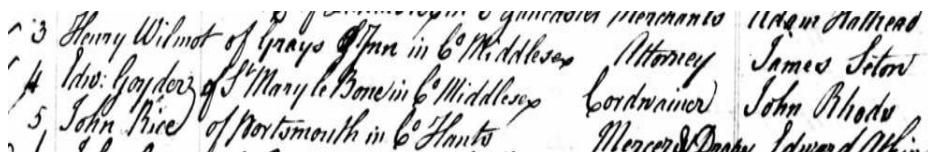 in Lancaster Merchants Adam
3 Henry Wilmot of Grays Inn in Co Middlesex Attorney James Seton
4 Edw: Goyder of St Mary le Bone in Co Middlesex Cordwainer John Rhods
5 John Rice of Portsmouth in Co Hants Mercer & Draper Edward